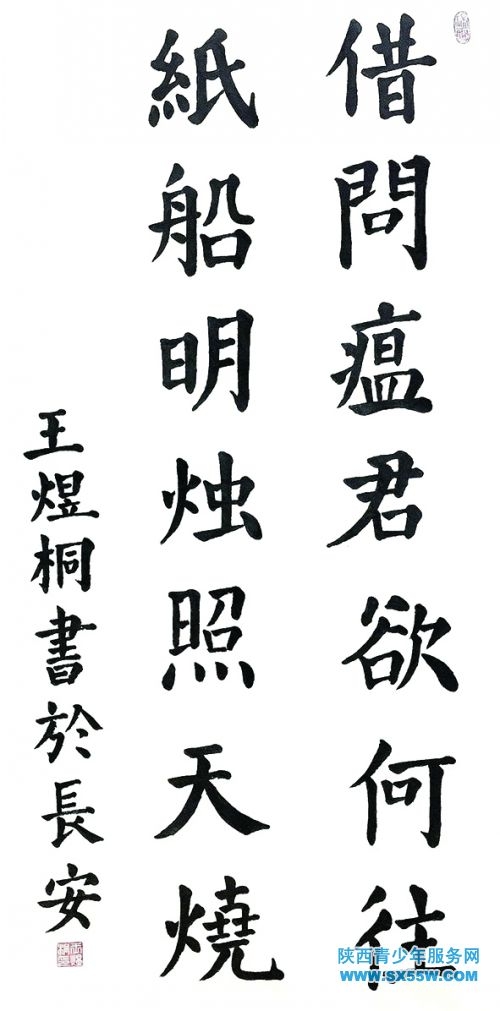 借問瘟君欲何往
紙船明烛照天燒
王煜桐書於長安
陕西青少年服务网
www.sx55w.com